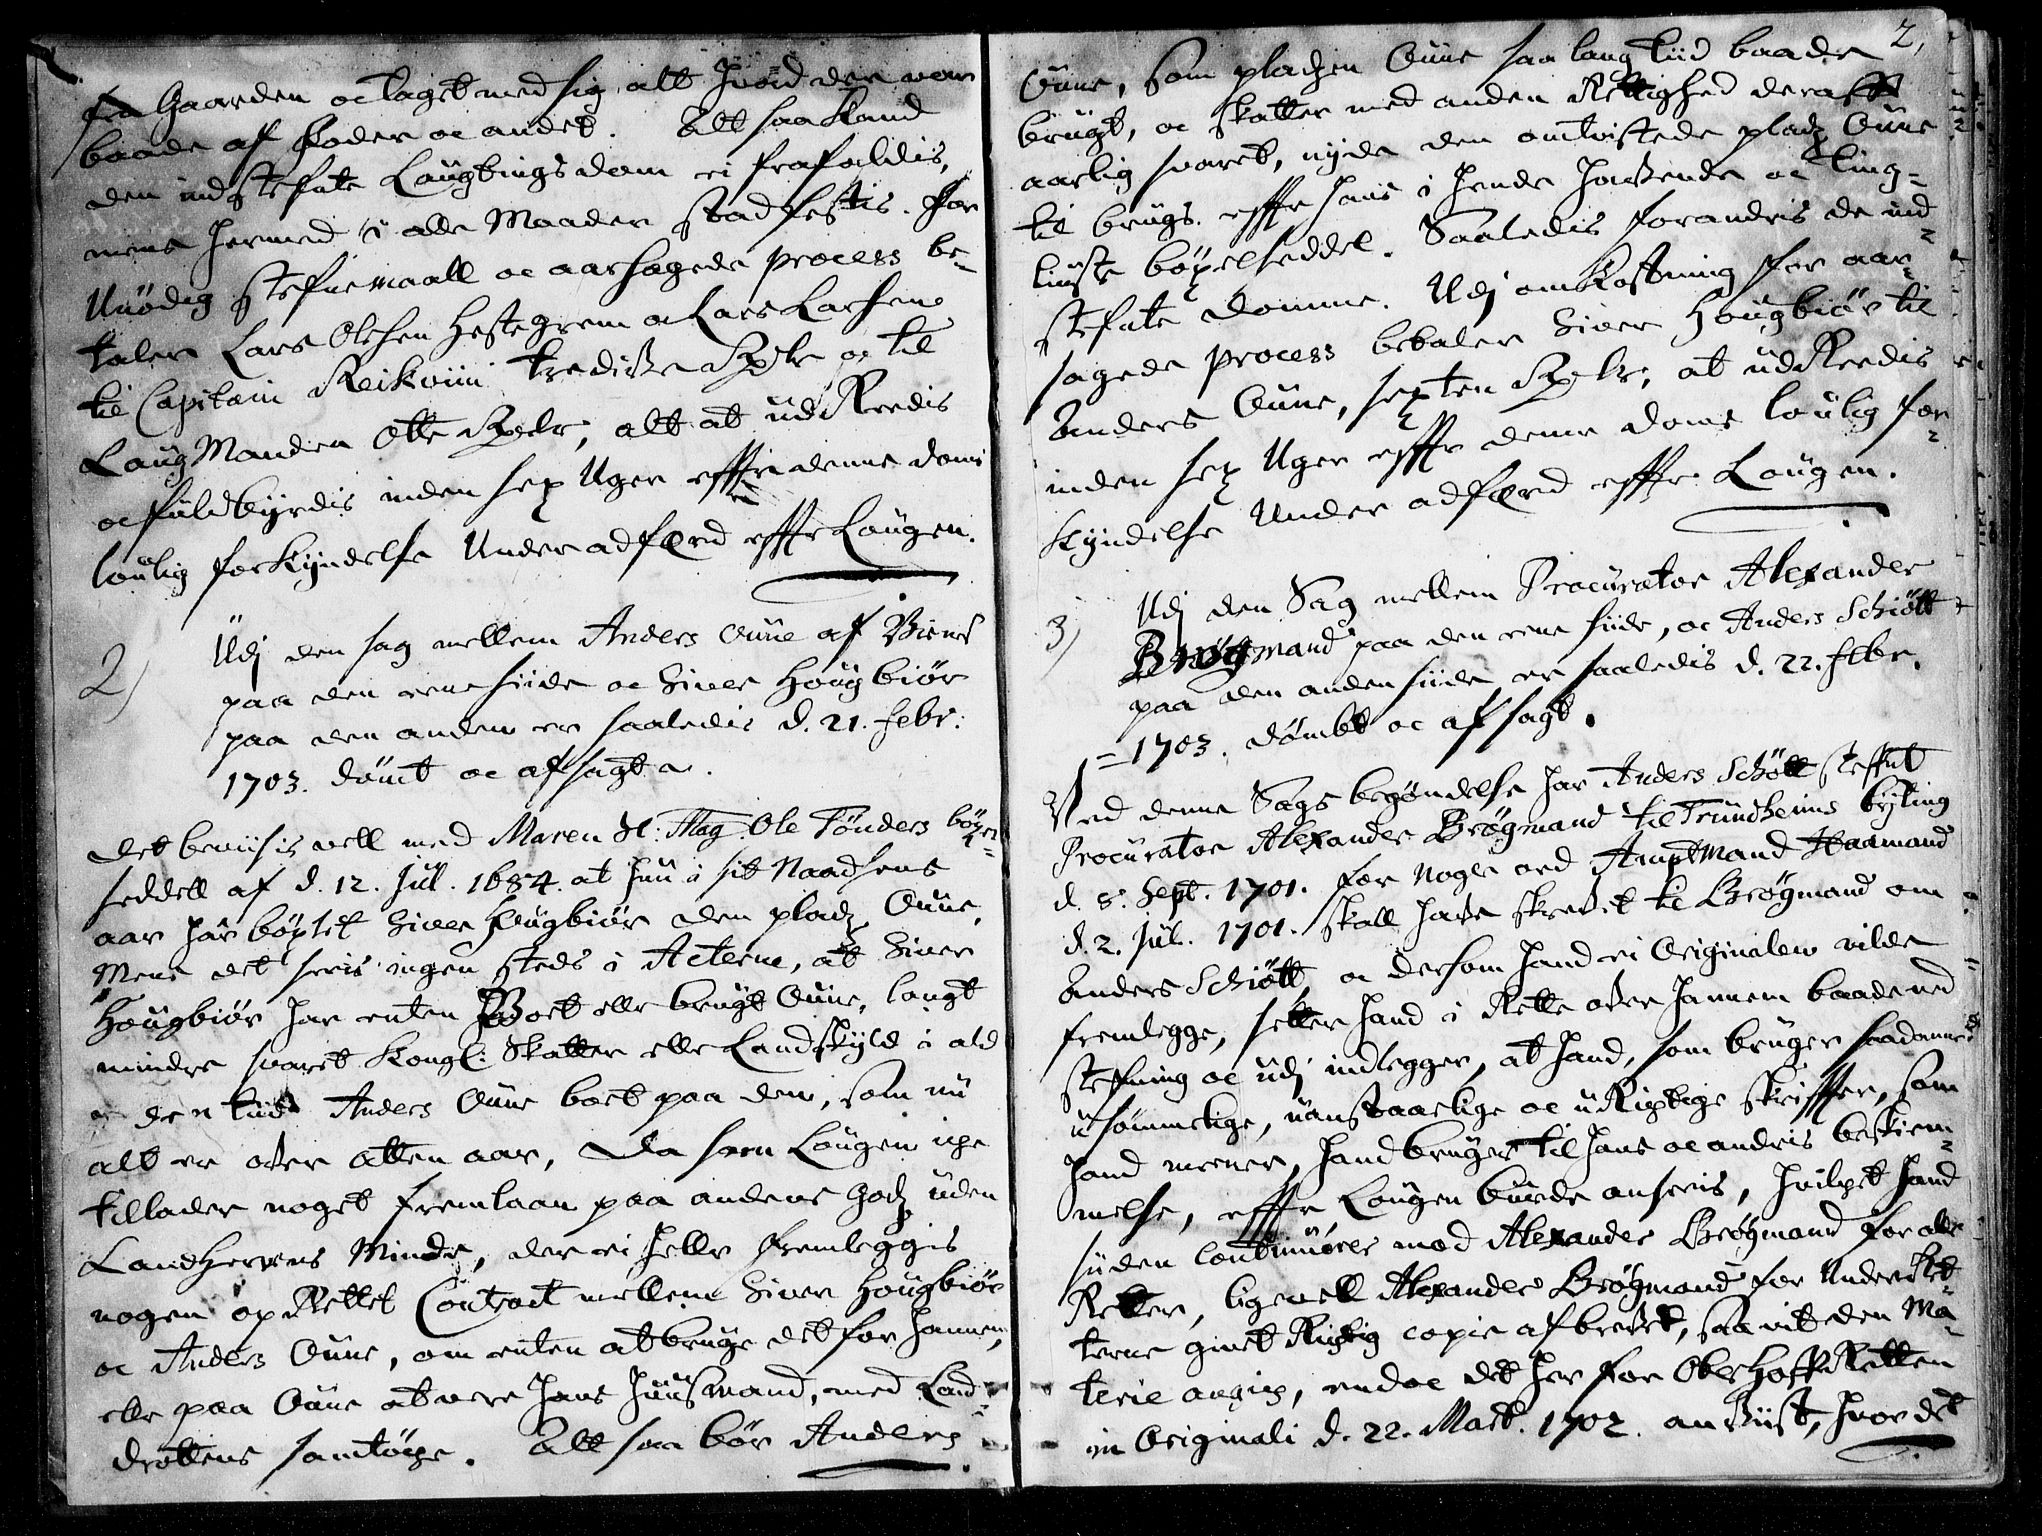 fra Gaarden oc taget med sig alt hvad der var
baade af Foder oc andet. Alt saa kand
den indstefnte Laugtings dom ei frafaldis,
mens hermed i alle Maader stadfestis. For
Unødig stefnemaall oc aarsagede process be-
taler Lars Olsen Hestegrem oc Lars Larsen
til Capitain Reikviin tredive Rixdr oc til
LaugManden Otte Rixdr, alt at udReedis
oc fuldbyrdis inden sex Uger effter denne doms
loulig forkyndelse Under adferd effter Lougen.
2)
Udj den sag mellem Anders Oune af Biernes
paa den eene siide oc Siver Hougbiør
paa den anden er saaledis d. 21. Febr:
1703. dømt oc afsagt.
Det beviisis vell med Maren Sl: Mag. Ole Tønders böxel-
seddell af d. 12. Jul. 1684. at hun i sit Naadsens
aar har böxlet Siver Hougbiør den pladz Oune,
Mens det seeis ingen steds i Acterne, at Siver
Hougbiør har enten Boet eller brugt Oune, langt
mindre svaret Kongl: Skatter eller Landskyld i ald
den tiid Anders Oune boet paa den, som nu
alt er over atten aar, Da som Lougen iche
tillader noget fremlaan paa andens Godz uden
Landherrens Minde, der ei heller fremleggis
nogen opRettet Contract mellem Siver Hougbiør
oc Anders Oune, om enten at bruge det for hannem,
eller paa Oune at vere hans Huusmand, med Land-
drottens samtöche. Alt saa bör Anders
2,
Oune, som pladzen Oune saa lang tiid baade
brugt, oc skatter med anden Rettighed deraff
aarlig svaret, nyde den omtvistede pladz Oune
til brugs effter hans i hende havende oc ting-
liuste böxelseddel. Saaledis forandris de ind-
stefnte domme. Udj omKostning for aar-
sagede process betaler Siver Hougbiør til
Anders Oune, sexten Rixdr, at udReedis
inden sex Uger effter denne doms loulig for-
kyndelse Under adferd effter Lougen.
3)
Udj den Sag mellem Procurator Alexander
Brøgmand paa den eene siide, oc Anders Schiøtt
paa den anden siide er saaledis d. 22. Febr.
1703. dömbt oc afsagt.
Ved denne Sags begyndelse har Anders Schøtt steffnt
Procurator Alexander Brøgmand til Trundheims byting
d. 8. Sept. 1701. for noger ord AmptMand Haamand
d. 2. Jul. 1701. skall have skrevet til Brøgmand om
Anders Schiøtt, oc dersom hand ei Originalen vilde
fremlegge, setter hand i Rette over hannem baade ved
stefning oc udj indlegger, at hand, som bruger saadanne
usømmelige, uanstaaelige oc uRigtige skriffter, som
hand meener, hand bruger til hans oc andris beskiem-
melse, effter Lougen burde anseeis, hvilket hand
siiden continuerer mod Alexander Brøgmand for alle
Retter, ligevell Alexander Brøgmand for UnderRet-
terne givet Rigtig copie af brevet, saa vit den Ma-
terie angich, endoc det her for OberHoffRetten
in Originali d. 22. Mart. 1702. anviist, hvor det